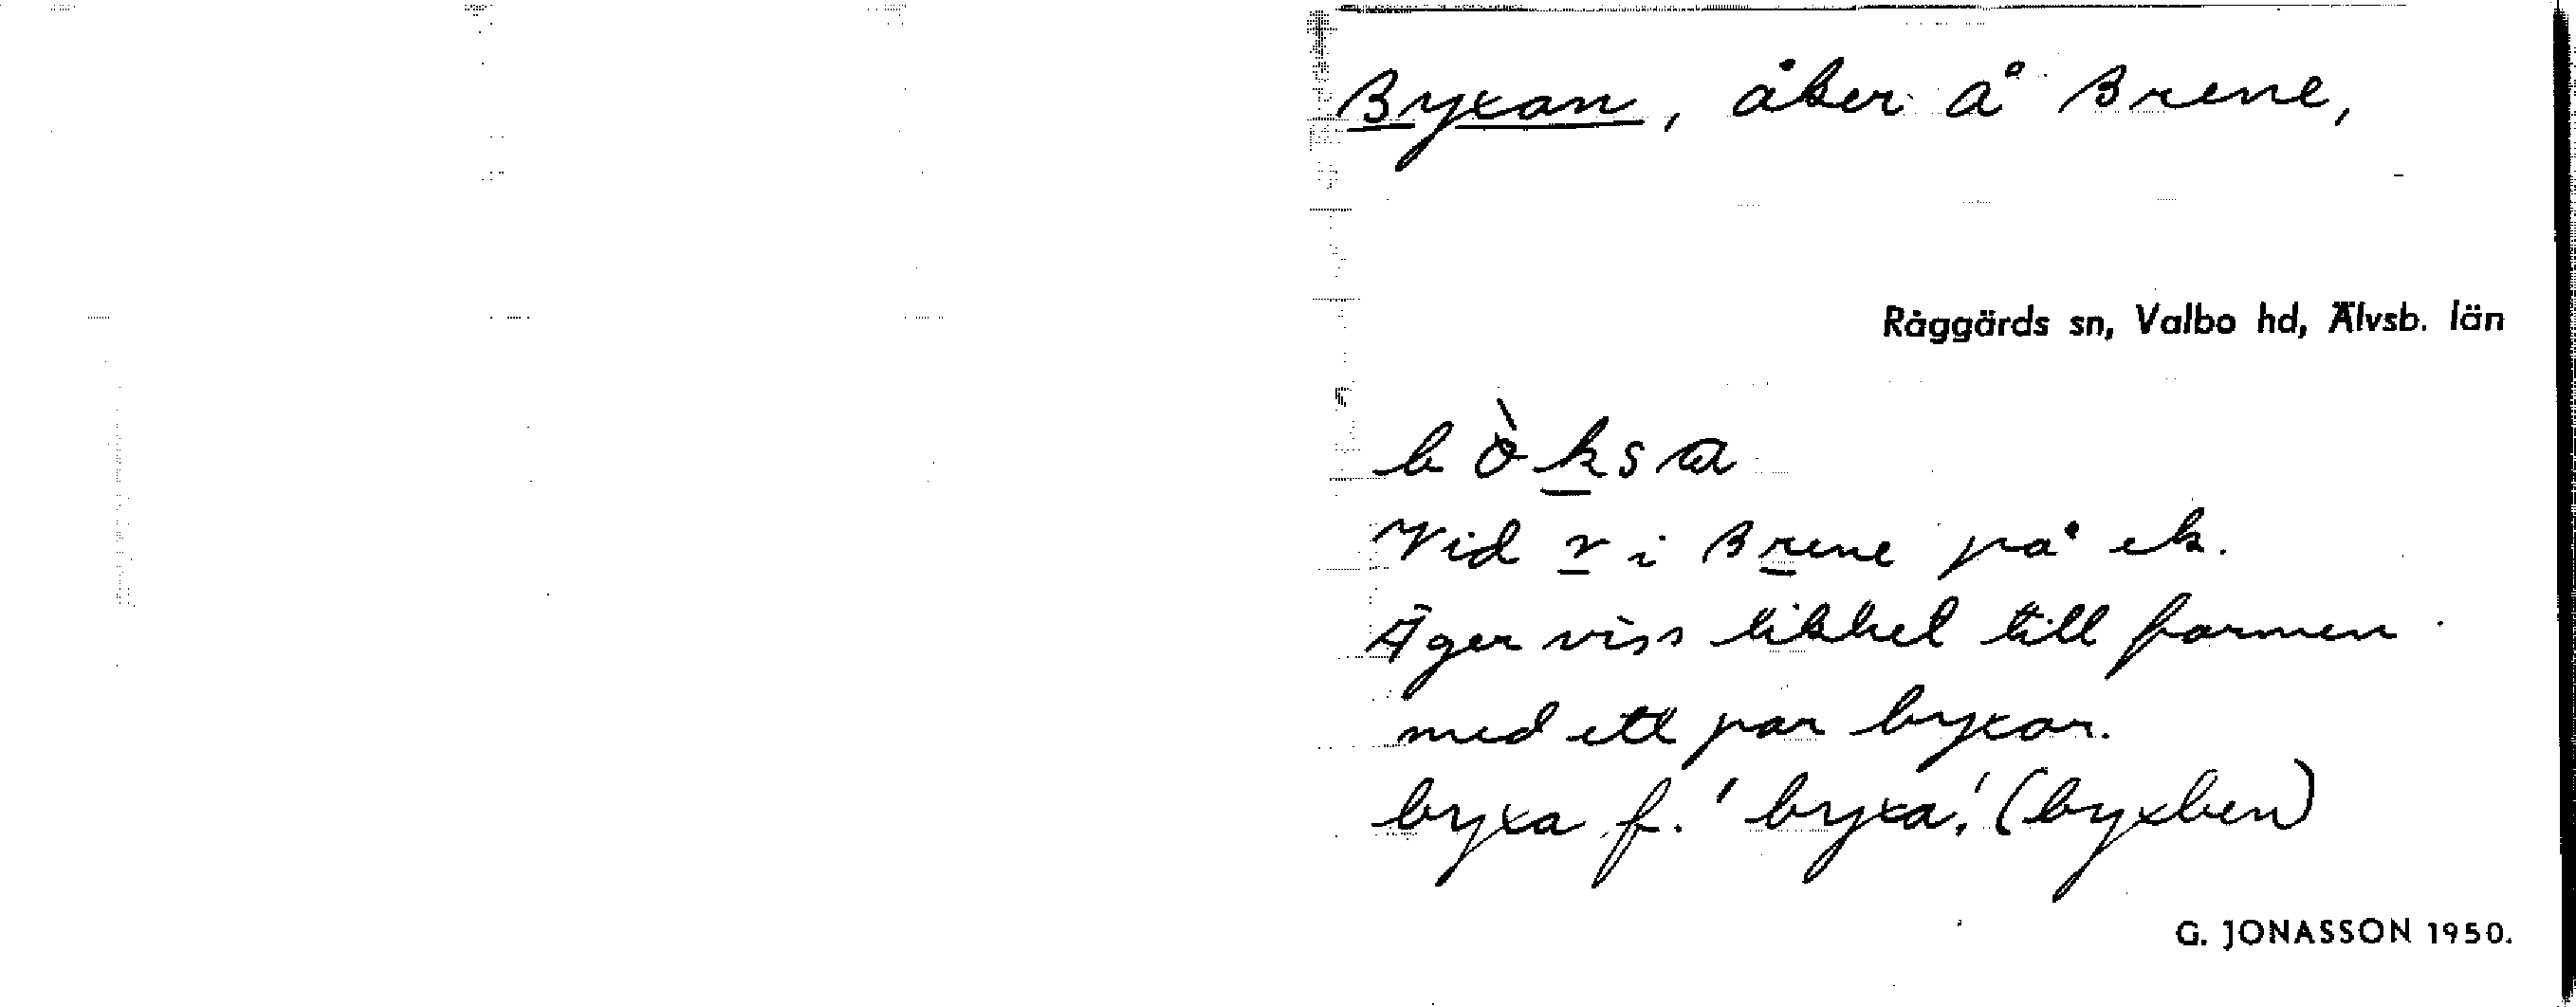 Byxan, åker å Brene,
Råggärds sn, Valbo hd, Älvsb. län
bò̀ksa
Vid r i Brene på ek.
Äger viss likhet till formen
med ett par byxor.
byxa f. 'byxa'. (byxben)
G. JONASSON 1950.